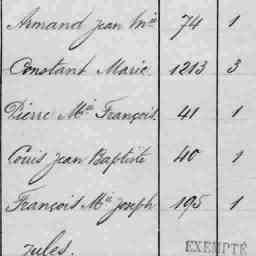 Armand Jean Mie 74 1
Constant Marie 1213 3
Pierre Mie François 41 1
Louis Jean Baptiste 40 1
François Mie Joseph 195 1
Jules. EXEMPTÉ